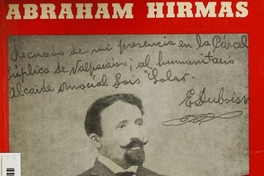 ABRAHAM HIRMAS
Recuerdo de mi presencia en la Cárcel
pública de Valparaiso; al humanitario
alcaide Amócial Lois Solar.
E. Dubois